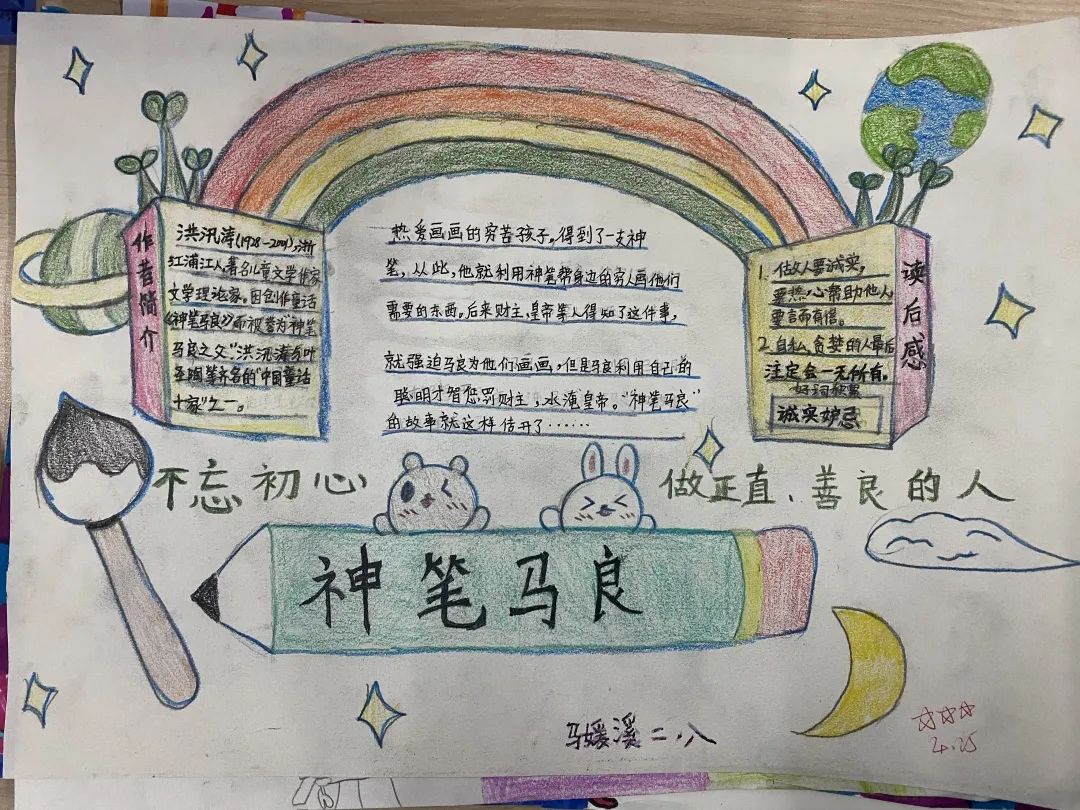 作者简介
洪汛涛(1928-2001),浙
江浦江人,著名儿童文学作家
文学理论家。因创作童话
《神笔马良》而被誉为"神笔
马良之父"洪汛涛与叶
圣陶等齐名的"中国童话
十家"之一。
热爱画画的穷苦孩子。得到了一支神
笔,从此,他就利用神笔帮身边的穷人画他们
需要的东西。后来财主,皇帝等人得知了这件事,
就强迫马良为他们画画,但是马良利用自己的
聪明才智惩罚财主,水淹皇帝。"神笔马良"
的故事就这样传开了……
读后感
1. 做人要诚实,
要热心帮助他人,
要言而有信。
2. 自私、贪婪的人最后
注定会一无所有。
好词积累
诚实 妒忌
不忘初心
做正直、善良的人
神笔马良
马媛溪 二.八
4.25